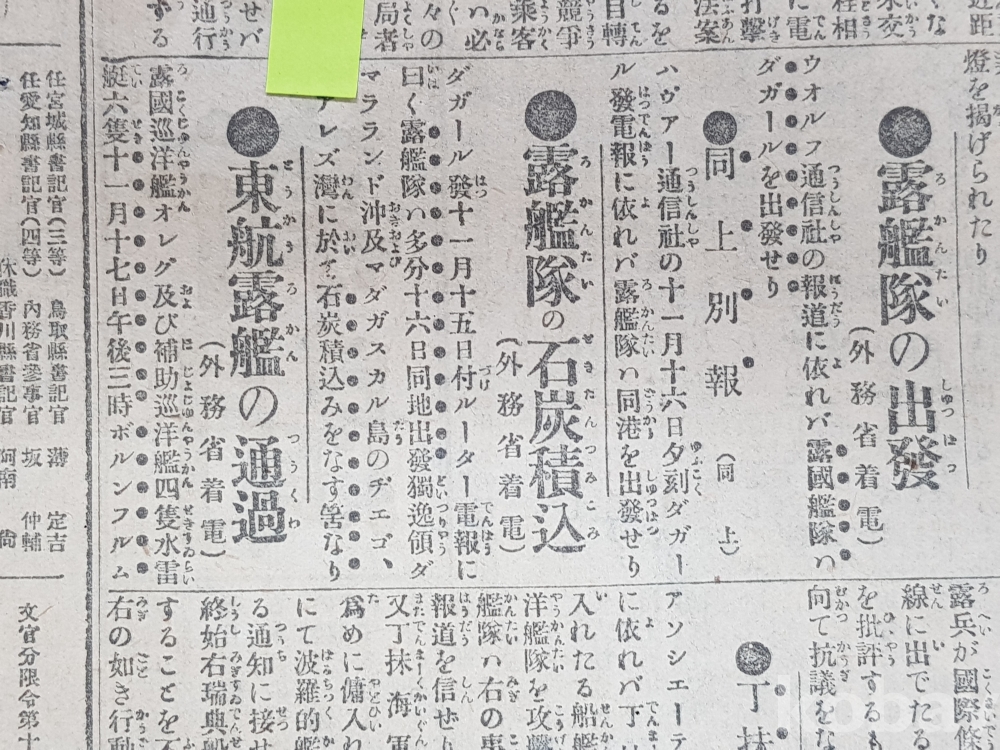 燈を揭げられたり
●露艦隊の出發
（外務省着電）
ウオルフ通信社の報道に依れバ露國艦隊ハ
ダガールを出發せり
●同上別報
（同上）
ハヴアー通信社の十一月十六日夕刻ダガー
ル發電報に依れバ露艦隊ハ同港を出發せり
●露艦隊の石炭積込
（外務省着電）
ダガール發十一月十五日付ルーター電報に
曰く露艦隊ハ多分十六日同地出發獨逸領ダ
マラランド沖及マダガスカル島のヂエゴ、
アレズ灣に於て石炭積込みをなす筈なり
●東航露艦の通過
（外務省着電）
露國巡洋艦オレグ及び補助巡洋艦四隻水雷
艇六隻十一月十七日午後三時ボルンフルム
任宮城縣書記官（三等）　鳥取縣書記官　薄　定吉
任愛知縣書記官（四等）　內務省參事官　坂　仲輔
休職香川縣書記官　阿南　尙
露兵が國際條
線に出でたる
を批評するも
向て抗議をな
●丁抹
アソシエーテ
に依れバ丁
入れたる船
洋艦隊を攻
艦隊ハ右の
報道を信せり
又丁抹海軍
爲めに傭入れ
にて波羅的艦
る通知に接せ
終始右瑞典船
することを不
右の如き行動
文官分限令第十
koba